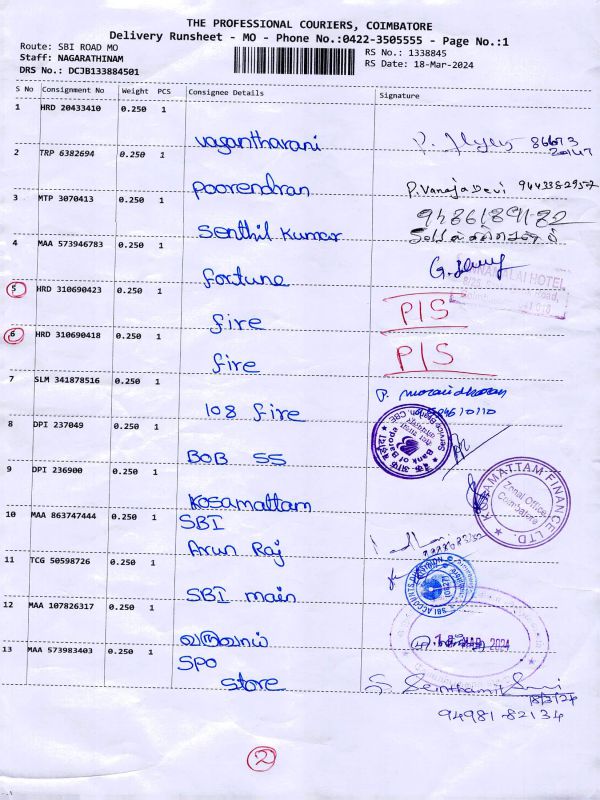 THE PROFESSIONAL COURIERS, COIMBATORE
Delivery Runsheet - MO - Phone No.:0422-3505555 - Page No.:1
Route: SBI ROAD MO
RS No.: 1338845
Staff: NAGARATHINAM
RS Date: 18-Mar-2024
DRS No.: DCJB133884501
S No Consignment No Weight PCS Consignee Details Signature
1 HRD 20433410 0.250 1
vagantharani
2 TRP 6382694 0.250 1
Poorendran P. Vanaja Devi
3 MTP 3070413 0.250 1
Senthil Kumar
4 MAA 573946783 0.250 1
fortune
5 HRD 310690423 0.250 1
fire P/S
6 HRD 310690418 0.250 1
fire P/S
7 SLM 341878516 0.250 1
108 fire
8 DPI 237049 0.250 1
Bank of Baroda
BOB SS
9 DPI 236900 0.250 1
KOSAMATTAM FINANCE LTD.
Zonal Office
Coimbatore
Kosamattam
10 MAA 863747444 0.250 1 SBI
Arun Raj
11 TCG 50598726 0.250 1
SBI main
12 MAA 107826317 0.250 1
2024
13 MAA 573983403 0.250 1 SPO
Store
18/3/24
94981-82134
2